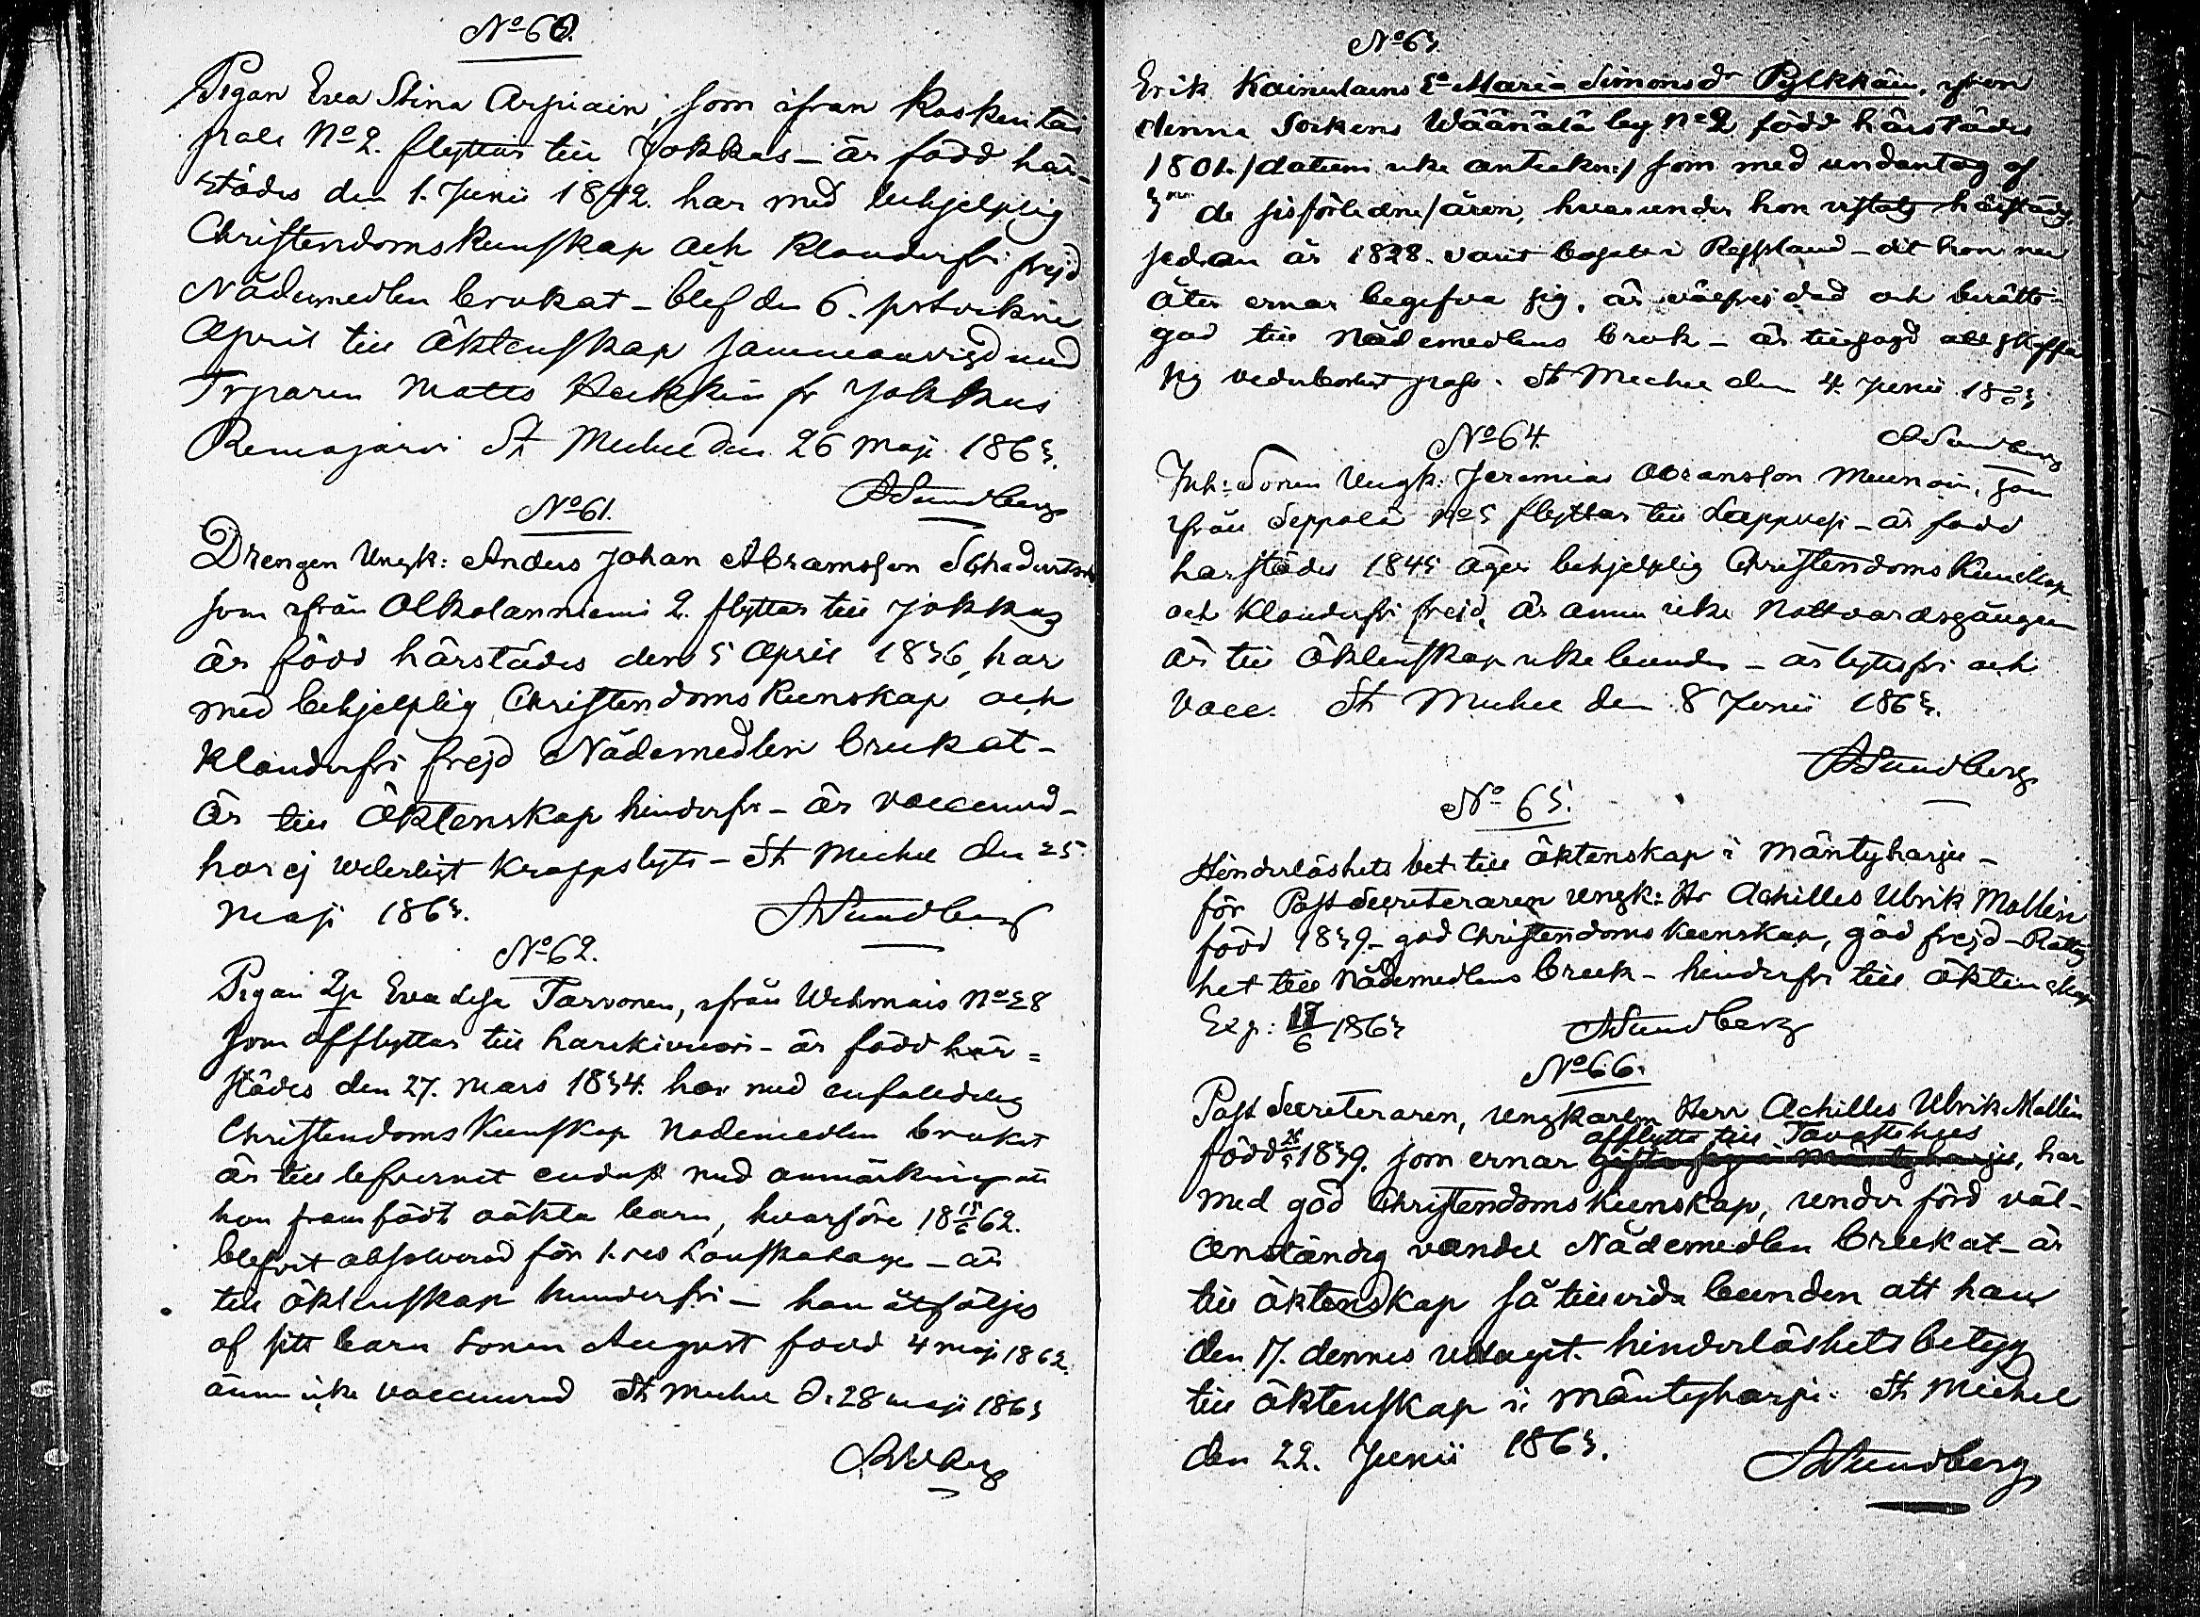 No 60.
Pigan Eva Stina Arpiain, som ifrån Koskentai
pale No 2. flyttar till Jokkas - är född här-
städes den 1. Junii 1842. har med behjelplig
Christendomskunskap och Klanderfri frejd
Nådemedlen brukat - blef den 6. sistvikne
April till Äktenskap sammanvigd med
Torparen Matts Hekkin fr Jokkas
Remojärvi St Michel den 26 Maji 1863.
A Sundberg
No 61.
Drengen Ungk: Anders Johan Abramsson
som ifrån Olkolanniemi 2. flyttar till Jokkas
är född härstädes den 5 April 1836, har
med behjelplig Christendoms Kunskap och
Klanderfri frejd Nådemedlen brukat -
är till Äktenskap hinderfri - är vaccinerad -
har ej veterligt kroppslyte - St Michel den 25
Maji 1863.
A Sundberg
No 62.
Pigan Eva Lisa Tarvonen, ifrån Wehmais No 28
som afflyttar till Harikivuori - är född här=
städes den 27. Mars 1834. har med enfalldelig
Christendoms Kunskap Nådemedlen brukat
är till lefvernet endast med anmärkning att
hon framfödt oäkta barn, hvarföre 18 15/6 62.
blefvit absolverad för 1. res Lönskaläge - är
till äktenskap hinderfri - hon åtföljes
af sitt barn Sonen August född 4 maji 1862.
ännu icke vaccinerad St Michel d. 28 maji 1863
No 63.
Erik Kainulains Ea Maria Simonsdr Pylkkäin, ifrån
denna Sockens Wäänälä by No 2 född härstädes
1801. /datum icke anteckn:/ som med undantag af
3ne de sisförledne/ åren, hvarunder hon vistats härstädes,
sedan år 1828. varit bosatt i Ryssland - dit hon nu
åter ernar begifva sig, är välfrejdad och berätti-
gad till Nådemedlens bruk - är tillsagd att skaffa
sig vederbörligt pass. St Michel den 4. Junii 1863
A Sundberg
No 64.
Inh: Sonen Ungk: Jeremias Abramsson Meunoin, som
ifrån Seppälä No 5 flyttar till Lappvesi - är född
härstädes 1845 äger behjelplig Christendoms Kunskap
och Klanderfri frejd, är ännu icke Nattvardsgången
är till Äktenskap icke bunden - är lytesfri och
vacc. St Michel den 8 Junii 1863.
A Sundberg
No 65.
Hinderlöshets bet. till äktenskap i Mäntyharju -
för Post Secreteraren Ungk: Hr Achilles Ulrik Mollin
född 1839. - god Christendoms Kunskap, god frejd - Rättig
het till Nådemedlens bruk - hinderfri till äktenskap
Exp: 17/6 1863
A Sundberg
No 66.
Post Secreteraren, Ungkarlen Herr Achilles Ulrik Mollin
afflytta till Tavastehus
född 1839. som ernar gifta sig i Mäntyharju, har
med god Christendoms Kunskap, under förd väl-
anständig vandel Nådemedlen brukat - är
till äktenskap så till vida bunden att han
den 17. dennes uttagit hinderlöshets betyg
till äktenskap i Mäntyharju. St Michel
den 22. Junii 1863.
A Sundberg